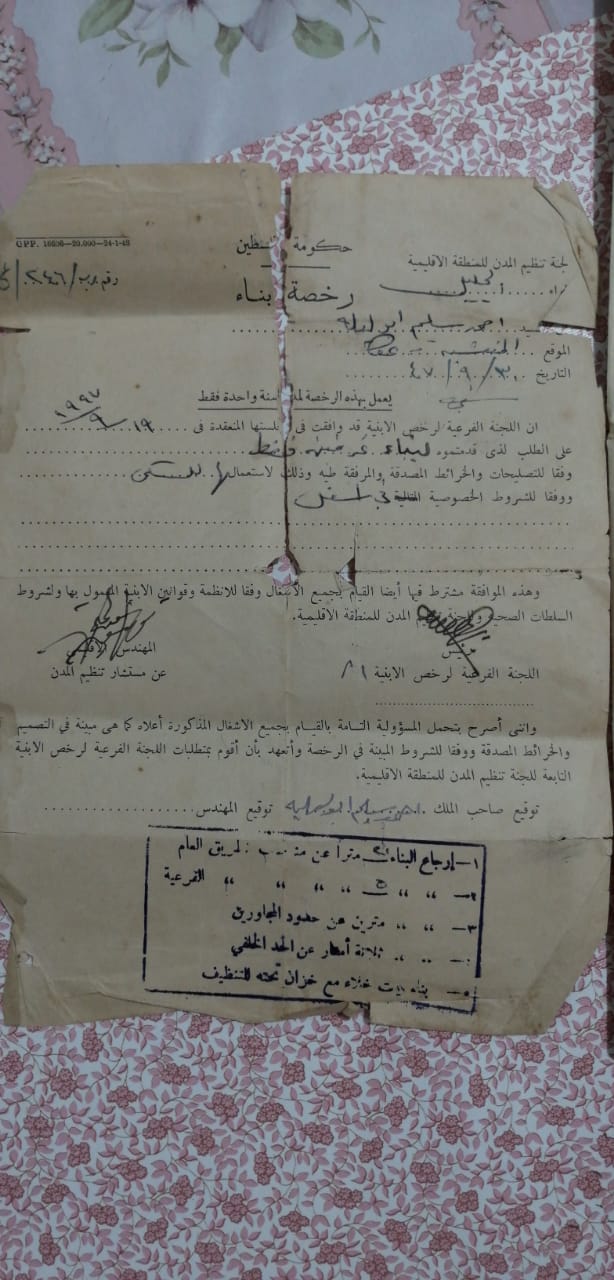 G.P.P. 16606—20.000—24-1-48
حكومة فلسطين
لجنة تنظيم المدن للمنطقة الاقليمية
لواء الجليل
رخصة بناء
السيد احمد سليم ابو
الموقع المنشيه - عكا
التاريخ ٤٧/٩/٣٠
يعمل بهذه الرخصة لمدة سنة واحدة فقط
ان اللجنة الفرعية لرخص الابنية قد وافقت في جلستها المنعقدة في ١٩/٩/١٩٤٧
على الطلب لذى قدمتموه لبناء فقط
وفقا للتصليحات والخرائط المصدقة والمرفقة طيه وذلك لاستعمالها للسكن
ووفقا للشروط الخصوصية التالية في
وهذه الموافقة مشترط فيها أيضا القيام بجميع الأشغال وفقا للانظمة وقوانين الابنية المعمول بها ولشروط
السلطات الصحية ولجنة تنظيم المدن للمنطقة الاقليمية.
رئيس
اللجنة الفرعية لرخص الابنية
المهندس
عن مستشار تنظيم المدن
وانني أصرح بتحمل المسؤولية التامة بالقيام بجميع الاشغال المذكورة أعلاه كما هي مبينة في التصميم
والخرائط المصدقة ووفقا للشروط المبينة في الرخصة وأتعهد بأن أقوم بمتطلبات اللجنة الفرعية لرخص الابنية
التابعة للجنة تنظيم المدن للمنطقة الاقليمية.
توقيع صاحب الملك احمد سليم توقيع المهندس
١— إرجاع البناء مترا عن الطريق العام
٢— " " " " " " الفرعية
٣— " " مترين عن حدود المجاورين
٤— " " ثلاثة أمتار عن الحد الخلفي
٥— بناء بيت خلاء مع خزان تحته للتنظيف